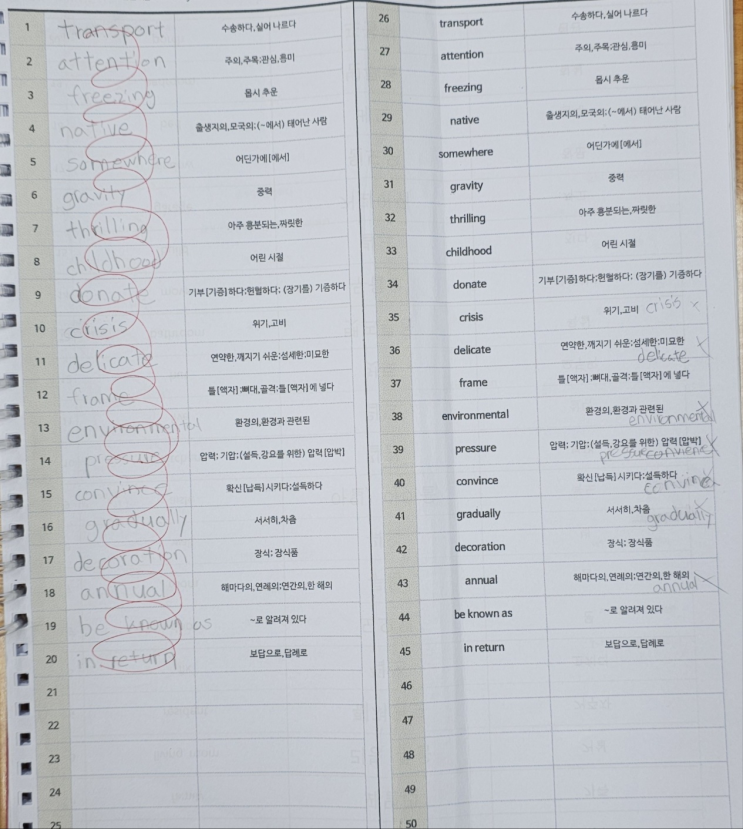 1 transport 수송하다,실어 나르다
2 attention 주의,주목;관심,흥미
3 freezing 몹시 추운
4 native 출생지의,모국의;(~에서) 태어난 사람
5 somewhere 어딘가에[에서]
6 gravity 중력
7 thrilling 아주 흥분되는,짜릿한
8 childhood 어린 시절
9 donate 기부[기증]하다;헌혈하다; (장기를) 기증하다
10 crisis 위기,고비
11 delicate 연약한,깨지기 쉬운;섬세한;미묘한
12 frame 틀[액자];뼈대,골격;틀[액자]에 넣다
13 environmental 환경의,환경과 관련된
14 pressure 압력; 기압;(설득,강요를 위한) 압력[압박]
15 convince 확신[납득]시키다;설득하다
16 gradually 서서히,차츰
17 decoration 장식; 장식품
18 annual 해마다의,연례의;연간의,한 해의
19 be known as ~로 알려져 있다
20 in return 보답으로,답례로
21
22
23
24
25
26 transport 수송하다,실어 나르다
27 attention 주의,주목;관심,흥미
28 freezing 몹시 추운
29 native 출생지의,모국의;(~에서) 태어난 사람
30 somewhere 어딘가에[에서]
31 gravity 중력
32 thrilling 아주 흥분되는,짜릿한
33 childhood 어린 시절
34 donate 기부[기증]하다;헌혈하다; (장기를) 기증하다
35 crisis 위기,고비 crisis
36 delicate 연약한,깨지기 쉬운;섬세한;미묘한
delicate
37 frame 틀[액자];뼈대,골격;틀[액자]에 넣다
38 environmental 환경의,환경과 관련된
environmental
39 pressure 압력; 기압;(설득,강요를 위한) 압력[압박]
40 convince 확신[납득]시키다;설득하다
41 gradually 서서히,차츰
gradually
42 decoration 장식; 장식품
43 annual 해마다의,연례의;연간의,한 해의
annual
44 be known as ~로 알려져 있다
45 in return 보답으로,답례로
46
47
48
49
50